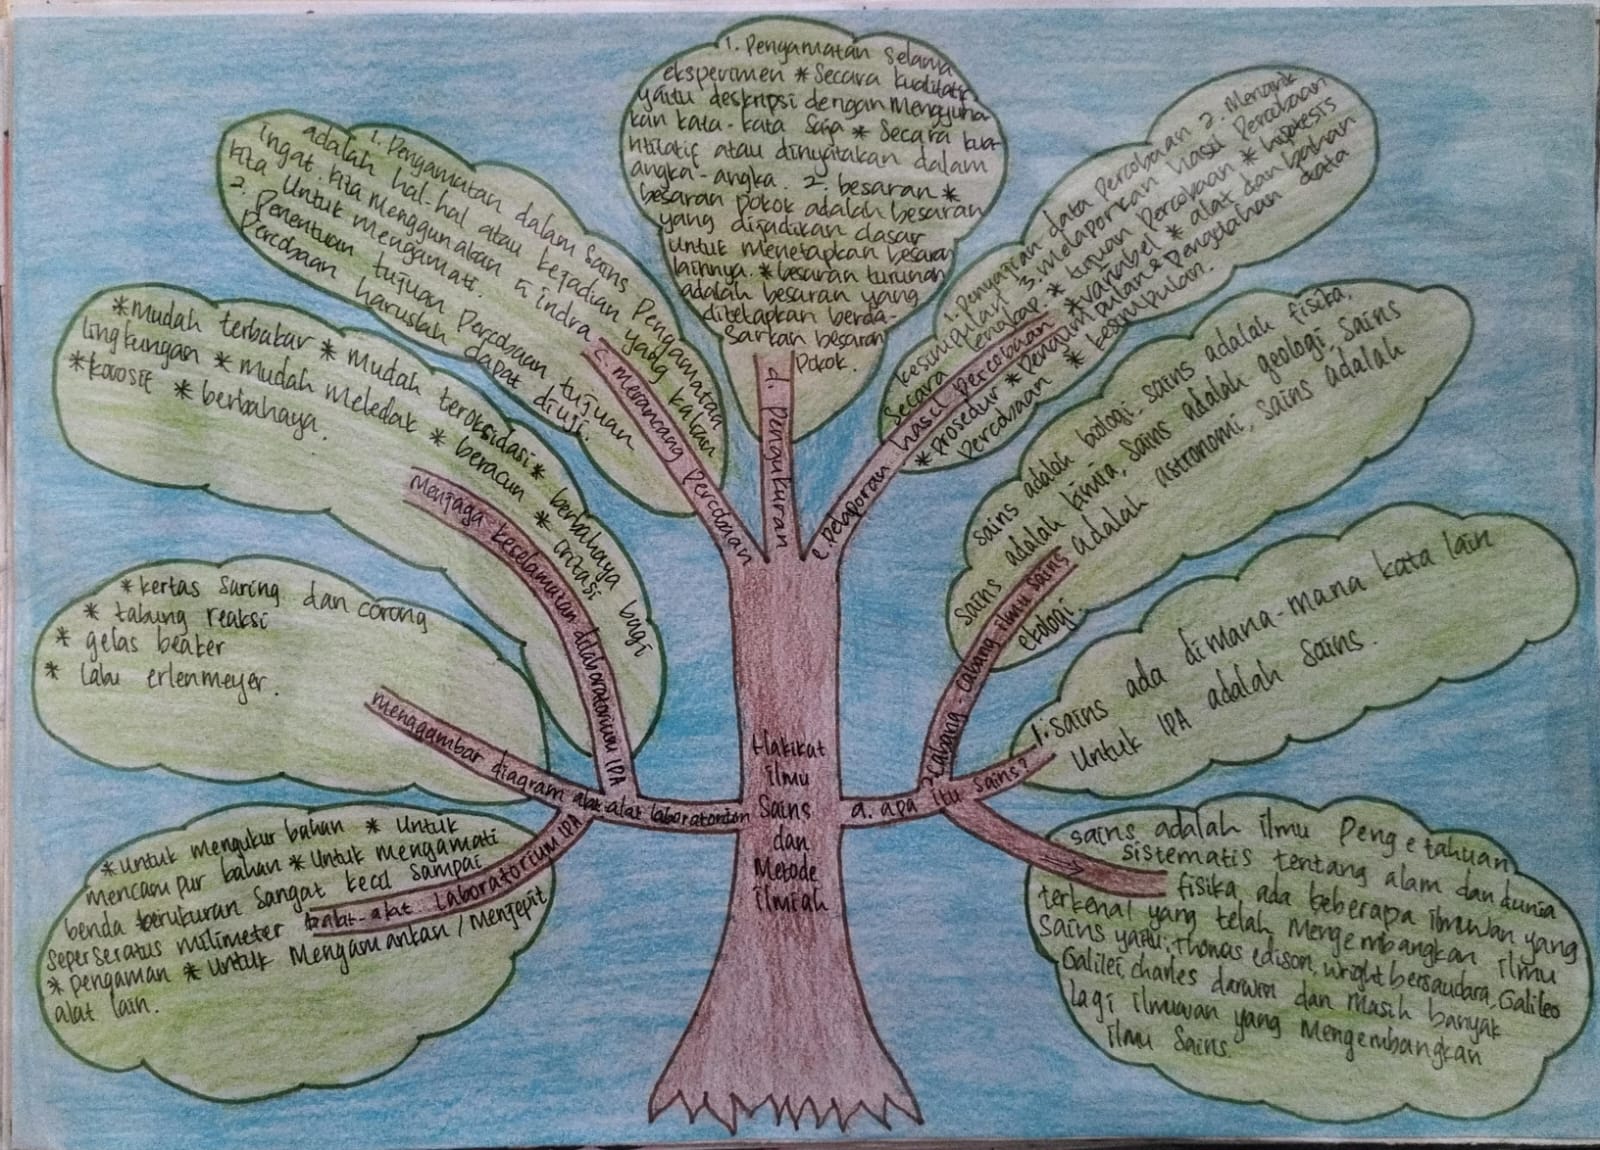 Hakikat
ilmu
Sains
dan
Metode
ilmiah
a. apa itu Sains?
sains adalah ilmu Pengetahuan
sistematis tentang alam dan dunia
fisika ada beberapa ilmuwan yang
terkenal yang telah Mengembangkan ilmu
Sains yaitu: Thomas edison, wright bersaudara, Galileo
Galilei, charles darwin dan Masih banyak
lagi ilmuwan yang Mengembangkan
ilmu Sains.
1. sains ada dimana-mana kata lain
Untuk IPA adalah Sains.
Cabang-cabang ilmu sains
sains adalah biologi, sains adalah fisika,
Sains adalah kimia, Sains adalah geologi, Sains
adalah astronomi, sains adalah
ekologi.
alat-alat laboratorium IPA
*untuk mengukur bahan * Untuk
mencampur bahan * Untuk mengamati
benda berukuran Sangat kecil Sampai
seperseratus milimeter
* pengaman * Untuk Mengamankan / Menjepit
alat lain.
menggambar diagram alat-alat laboratorium
*kertas Saring dan corong
* tabung reaksi
* gelas beaker
* labu erlenmeyer.
Menjaga keselamatan dilaboratorium IPA
*mudah terbakar * mudah teroksidasi * berbahaya bagi
lingkungan * mudah meledak * beracun * iritasi
*korosif * berbahaya.
c. merancang Percobaan
1. Pengamatan dalam Sains Pengamatan
adalah hal-hal atau kejadian yang kalian
ingat. kita menggunakan 5 indra
kita Untuk mengamati.
2. Penentuan tujuan Percobaan tujuan
Percobaan haruslah dapat diuji.
d. Pengukuran
1. Pengamatan Selama
eksperimen * Secara kualitatif
yaitu deskripsi dengan Mengguna-
kan kata-kata Saja * Secara kua-
ntitatif atau dinyatakan dalam
angka-angka. 2. besaran *
besaran Pokok adalah besaran
yang dijadikan dasar
Untuk menetapkan besaran
lainnya. *besaran turunan
adalah besaran yang
ditetapkan berda-
sarkan besaran
Pokok.
e. Pelaporan hasil Percobaan
1. Penyajian data Percobaan 2. Menarik
kesimpulan 3. melaporkan hasil Percobaan
Secara lengkap. * tujuan Percobaan * hipotesis
*variabel * alat dan bahan
*Prosedur * Pengumpulan & Pengolahan data
Percobaan * kesimpulan.